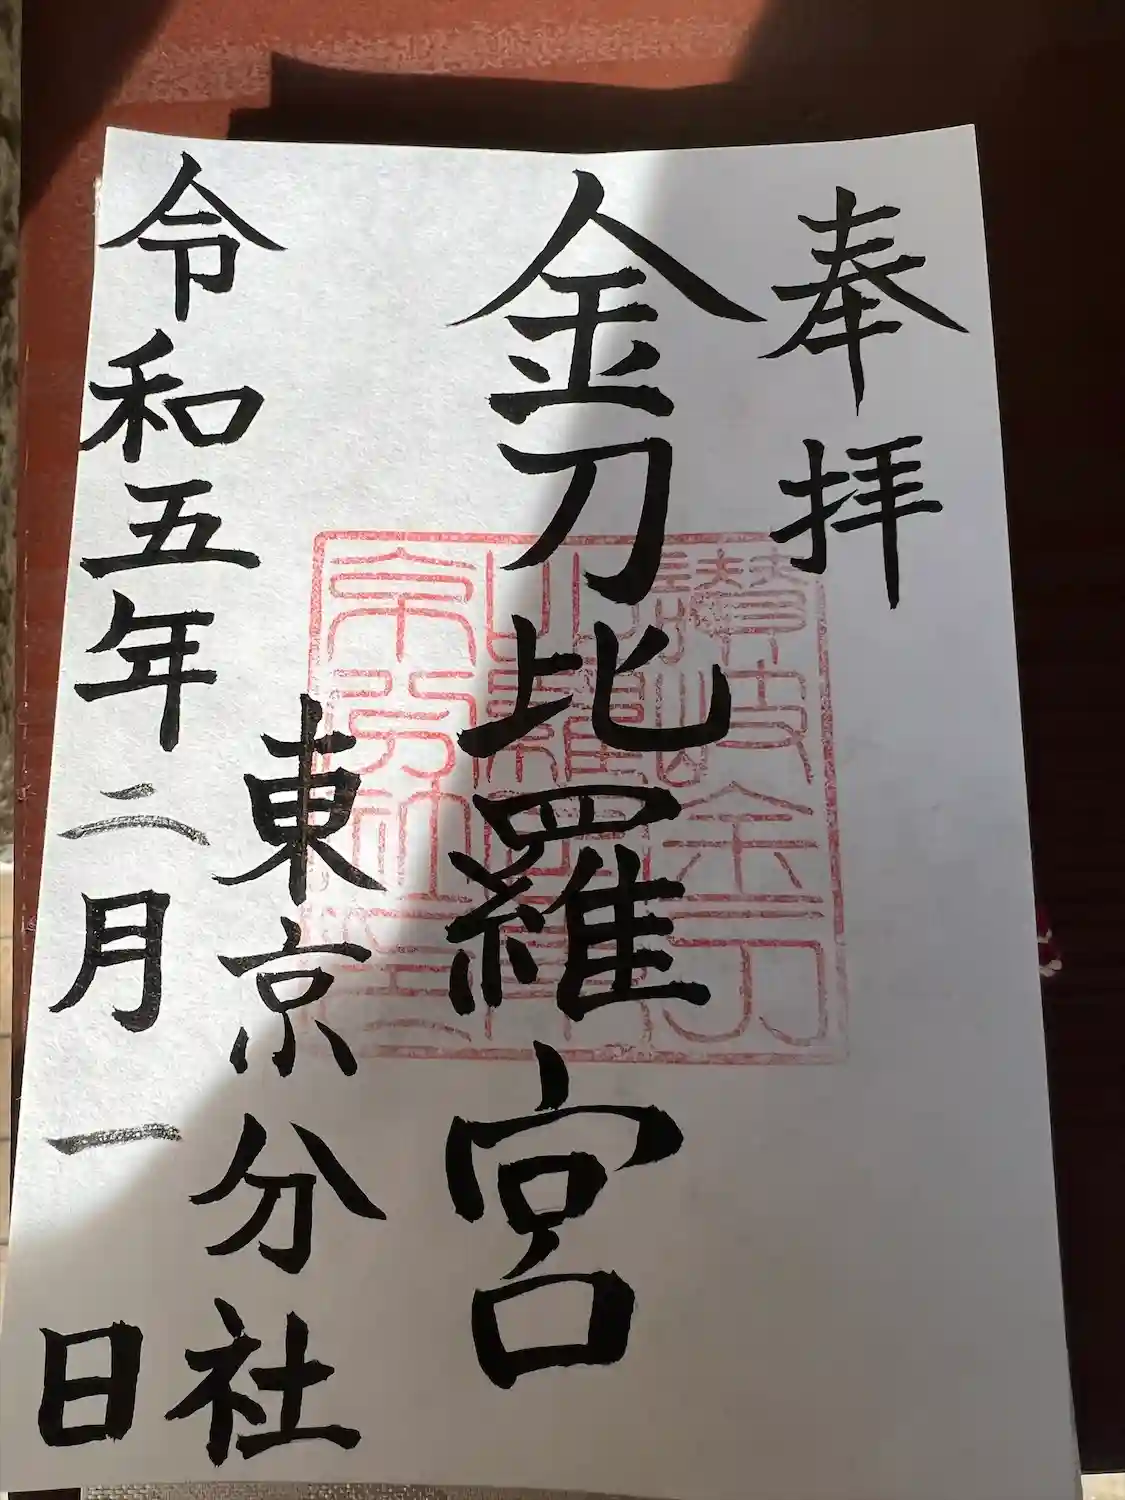 奉拝
金刀比羅宮
東京分社
令和五年二月一日
讃岐金刀
比羅宮東
京分社之印